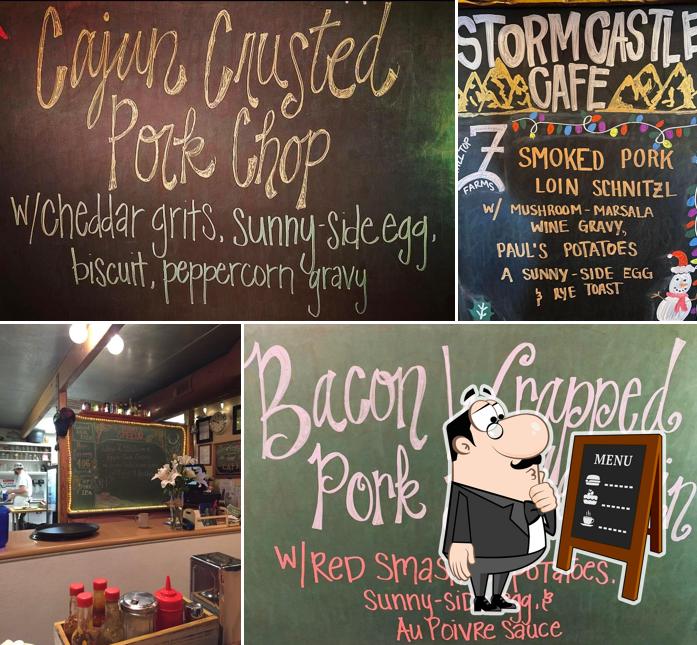 Cajun Crusted
Pork Chop
w/cheddar grits, sunny-side egg,
biscuit, peppercorn gravy
STORM CASTLE
CAFE
HILLTOP
7
FARMS
SMOKED PORK
LOIN SCHNITZL
W/ MUSHROOM-MARSALA
WINE GRAVY,
PAUL'S POTATOES
A SUNNY-SIDE EGG
& RYE TOAST
Bacon Wrapped
Pork
W/RED Smas
Sunny-sid egg, &
Au Poivre Sauce
MENU